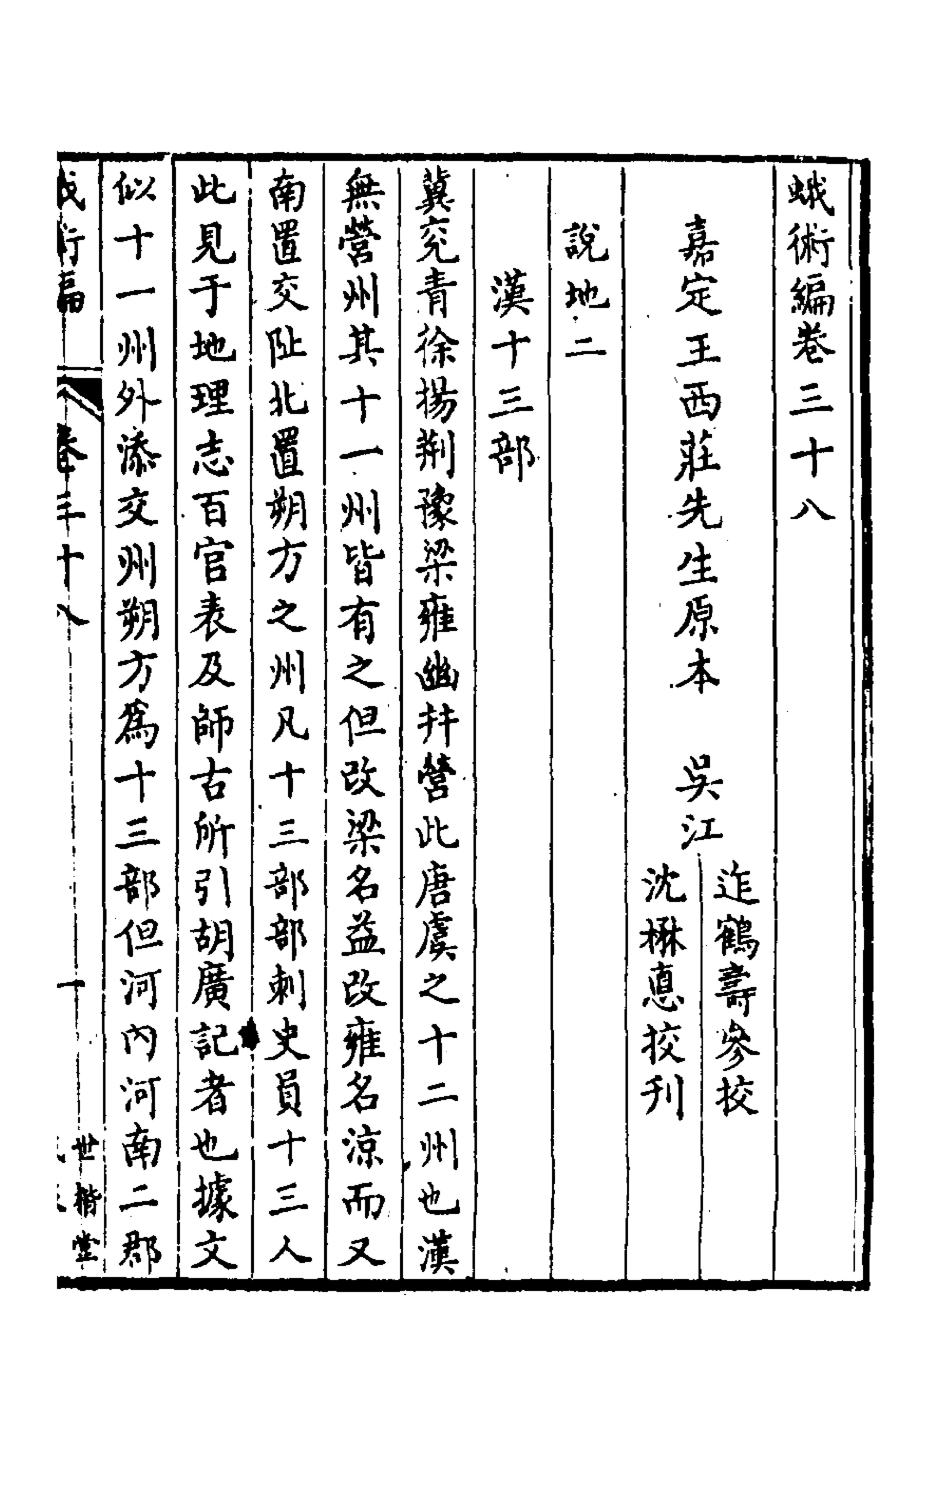 蛾術編卷三十八
嘉定王西莊先生原本　吳江
迮鶴壽參挍
沈楙悳挍刋
說地二
漢十三部
冀兖青徐揚荆豫梁雍幽幷營此唐虞之十二州也漢
無營州其十一州皆有之但改梁名益改雍名涼而又
南置交阯北置朔方之州凡十三部部刺史員十三人
此見于地理志百官表及師古所引胡廣記者也據文
似十一州外添交州朔方爲十三部但河內河南二郡
蛾術編
卷三十八
一
世楷堂